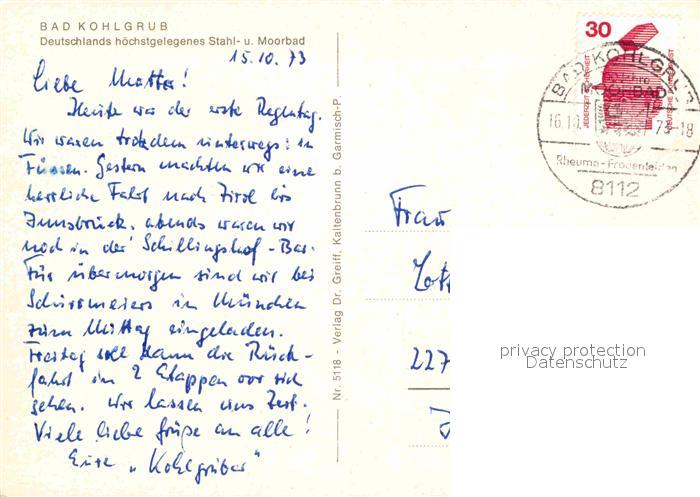 BAD KOHLGRUB
Deutschlands höchstgelegenes Stahl- u. Moorbad
15.10.73
Liebe Mutter!
Heute war der erste Regentag.
Wir waren trotzdem unterwegs: in
Füssen. Gestern machten wir eine
herrliche Fahrt nach Zirl bis
Innsbruck, abends waren wir
noch in der Schillingshof-Bar.
Für übermorgen sind wir bei
Schürmeiers in München
zum Mittag eingeladen.
Freitag soll dann die Rück-
fahrt in 2 Etappen vor sich
gehen. Wir lassen uns Zeit.
Viele liebe Grüße an alle!
Eure „Kohlgruber"
Nr. 5118 - Verlag Dr. Greiff, Kaltenbrunn b. Garmisch-P.
30
JEDERZEIT SICHERHEIT
DEUTSCHE BUNDESPOST
BAD KOHLGRUB
MOORBAD
16.10.73-18
Rheuma-Frauenleiden
8112
Frau
227
privacy protection
Datenschutz